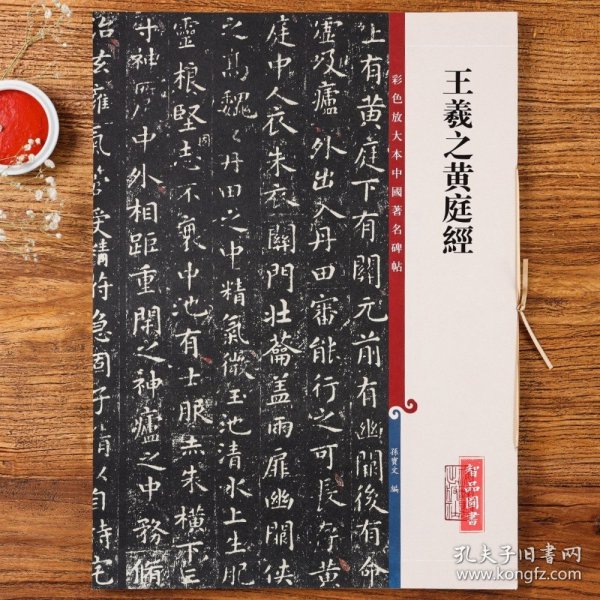 王羲之黄庭經
彩色放大本中國著名碑帖
孫寶文 編
上有黄庭下有關元前有幽闕後有命
嘘吸廬外出入丹田審能行之可長存黄
庭中人衣朱衣關門壯蘥蓋兩扉幽闕俠
之高巍〻丹田之中精氣微玉池清水上生肥
靈根堅志不衰中池有士服赤朱橫下三
寸神所居中外相距重閉之神廬之中務脩
治玄廱氣管受精符急固子精以自持宅
智品圖書
孔夫子旧書网
www.kongfz.com